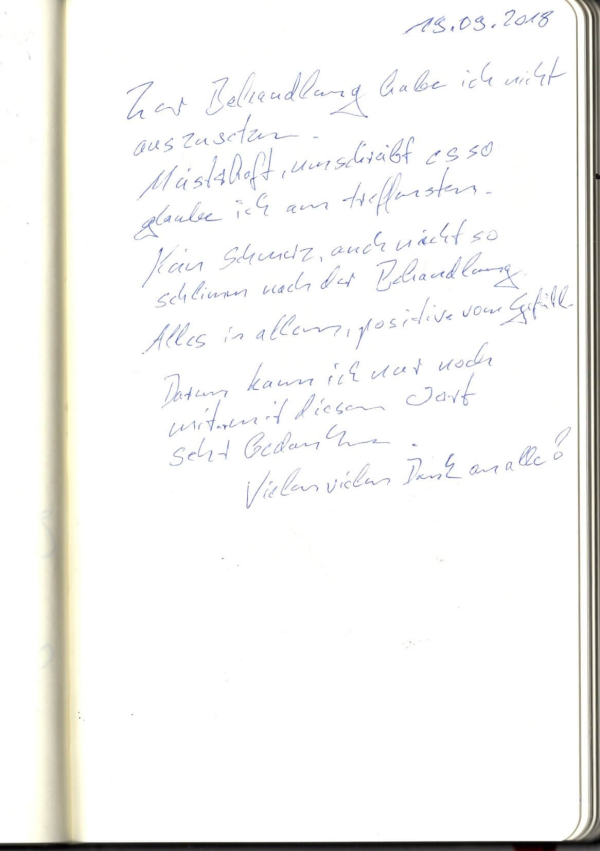 19.09.2018
Zur Behandlung habe ich nicht
auszusetzen.
Meisterhaft, umschreibt es so
glaube ich am treffensten.
Kein Schmerz, auch nicht so
schlimm nach der Behandlung.
Alles in allem, positive vom Gefühl.
Darum kann ich nur noch
mit diesem Wort
sehr bedanken.
Vielen vielen Dank an alle!